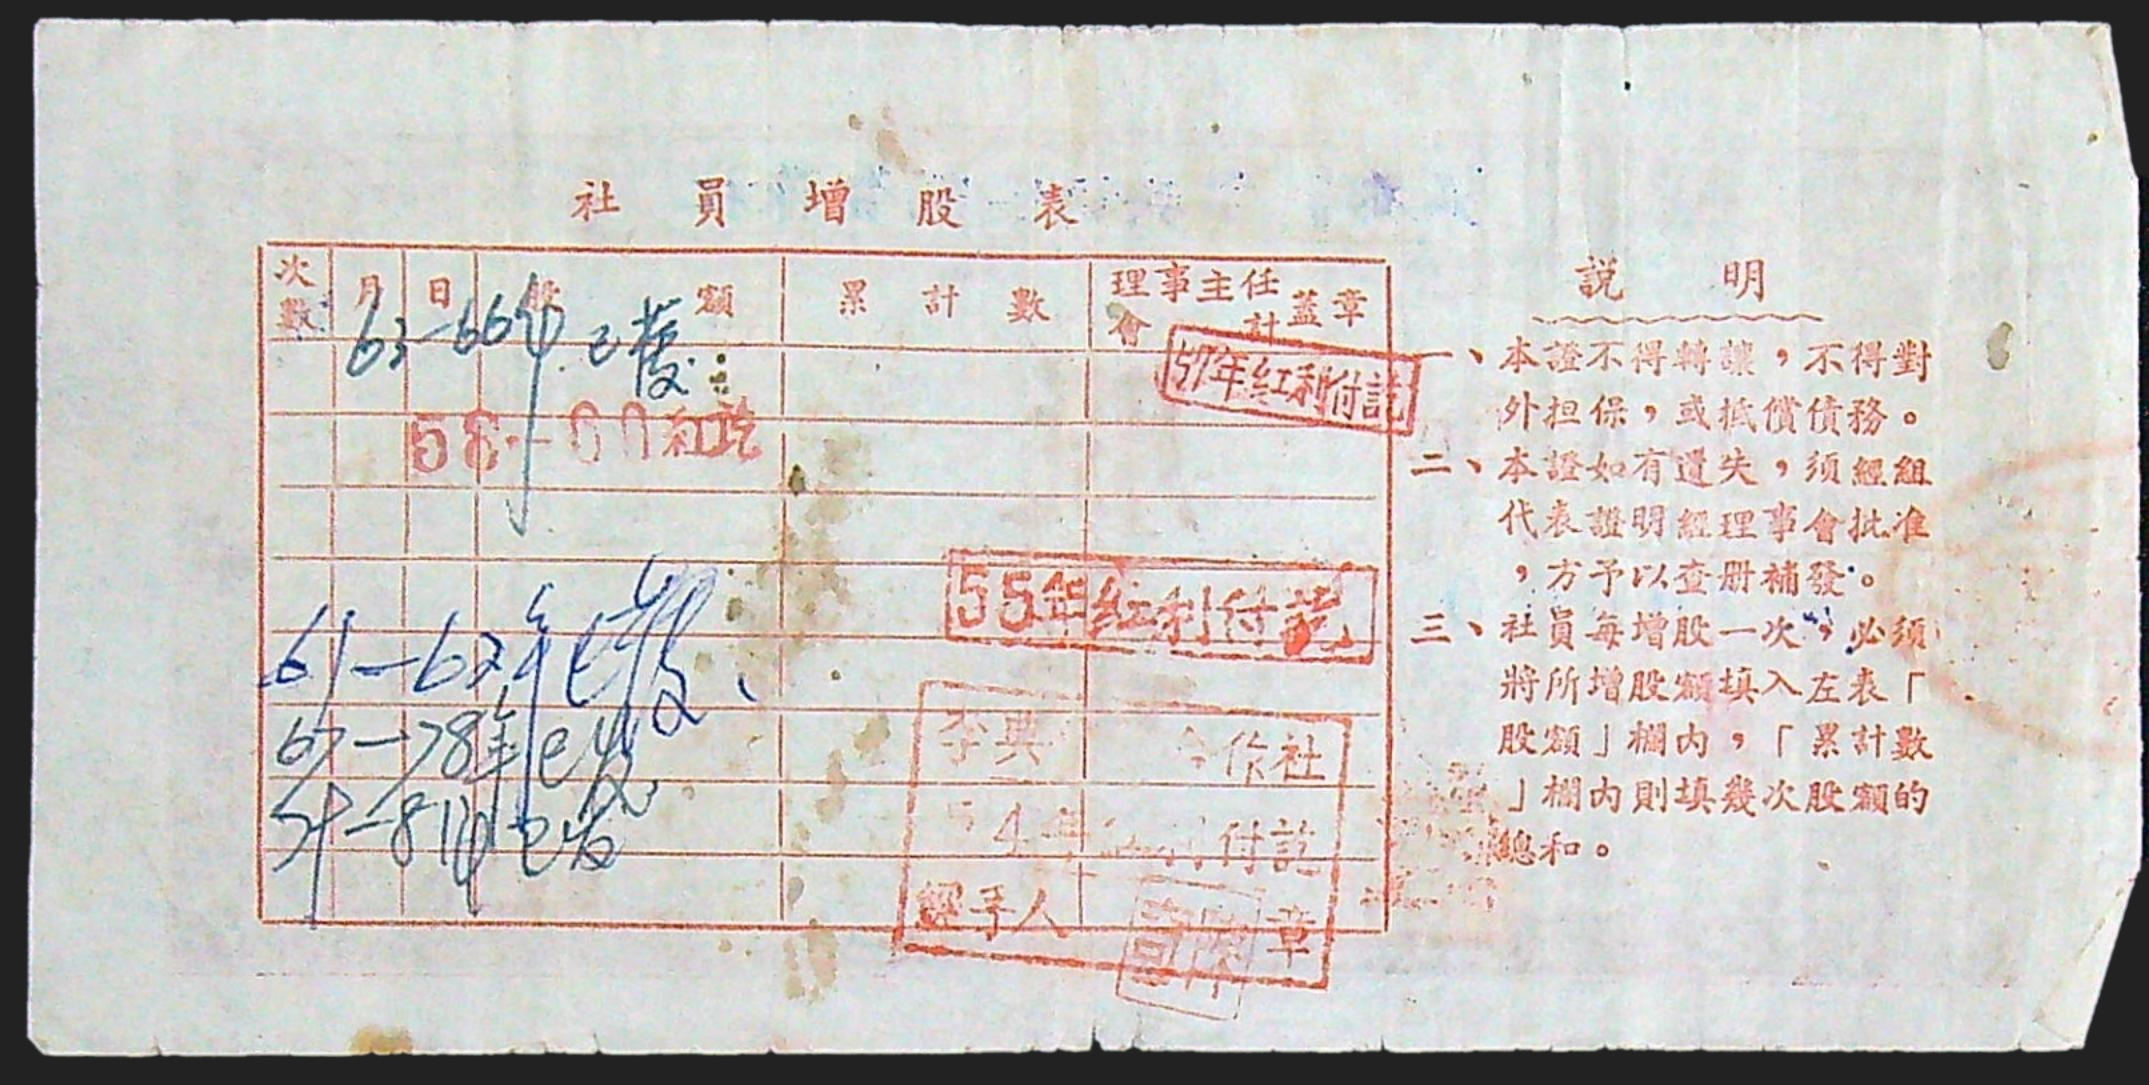 社員增股表
次數 月 日 股額 累計數 理事主任 會計 蓋章
63-66年已發
57年紅利付訖
58-60 紅訖
55年紅利付訖
61-62年已發
67-78年已发
作社
54年紅利付訖
經手人 章
説明
一、本證不得轉讓，不得對
外担保，或抵償債務。
二、本證如有遺失，須經組
代表證明經理事會批准
，方予以查册補發。
三、社員每增股一次，必須
將所增股額填入左表「
股額」欄内，「累計數
」欄内則填幾次股額的
總和。